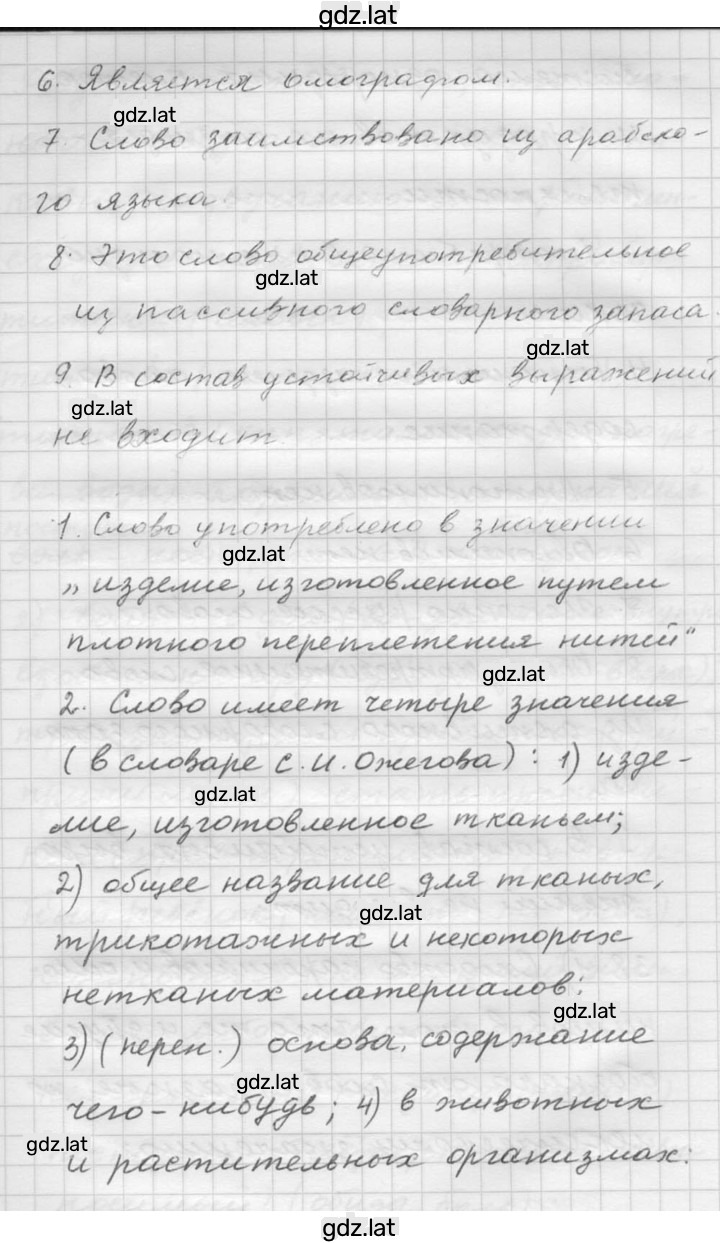 gdz.lat
6. Является омографом.
gdz.lat
7. Слово заимствовано из арабско-
го языка.
8. Это слово общеупотребительное
gdz.lat
из пассивного словарного запаса.
gdz.lat
9. В состав устойчивых выражений
gdz.lat
не входит.
1. Слово употреблено в значении
gdz.lat
„изделие, изготовленное путем
плотного переплетения нитей“
gdz.lat
2. Слово имеет четыре значения
(в словаре С. И. Ожегова): 1) изде-
gdz.lat
лие, изготовленное тканьем;
2) общее название для тканых,
gdz.lat
трикотажных и некоторых
нетканых материалов:
gdz.lat
3) (перен.) основа, содержание
gdz.lat
чего-нибудь; 4) в животных
gdz.lat
и растительных организмах:
gdz.lat